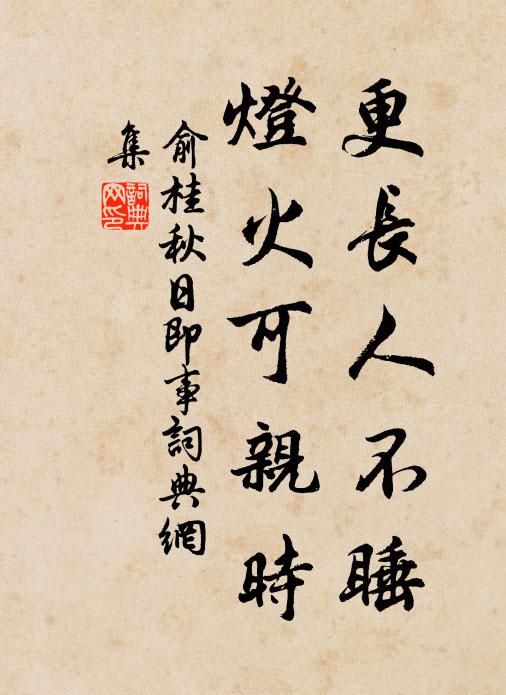 更長人不睡
燈火可親時
俞桂秋日即事詞典網
集
詞典
网印